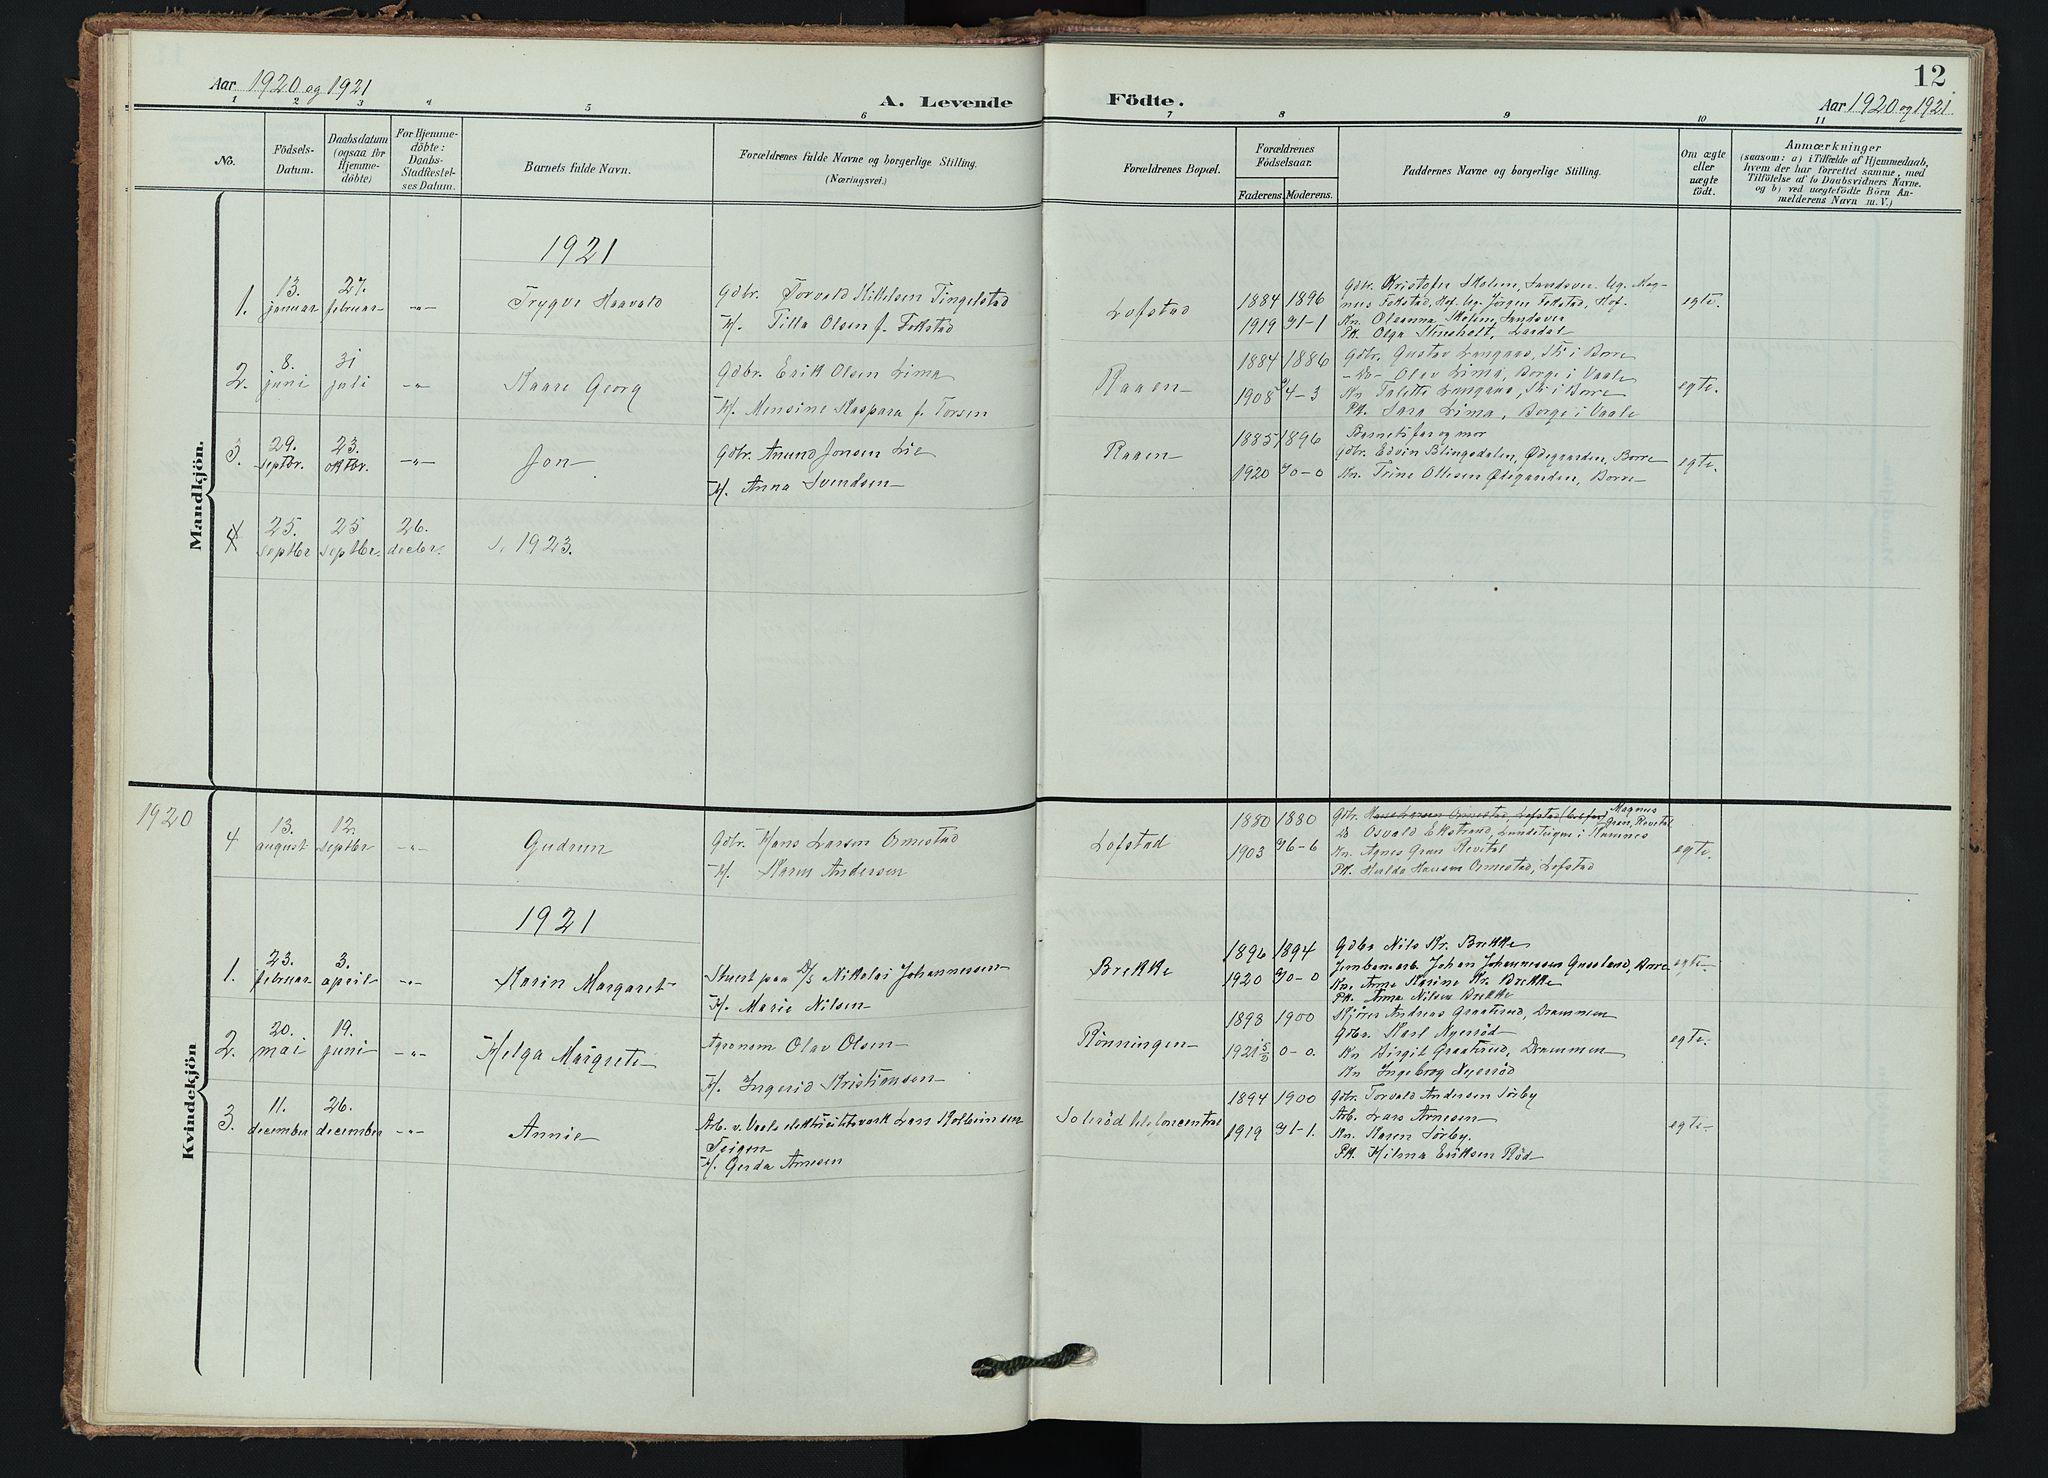 Aar 1920 og 1921
A. Levende
Födte.
12
Aar 1920 og 1921.
1 2 3 4 5 6 7 8 9 10 11
No.
Födsels-
Datum.
Daabsdatum
(ogsaa for
Hjemme-
döbte)
For Hjemme-
döbte:
Daabs-
Stadfæstel-
ses Datum.
Barnets fulde Navn.
Forældrenes fulde Navne og borgerlige Stilling.
(Næringsvei.)
Forældrenes Bopæl.
Forældrenes
Födselsaar.
Faderens. Moderens.
Faddernes Navne og borgerlige Stilling.
Om ægte
eller
uægte
födt.
Anmærkninger
(saasom: a) i Tilfælde af Hjemmedaab,
hvem der har forrettet samme, med
Tilföielse af to Daabsvidners Navne.
og b) ved uægtefödte Börn An-
melderens Navn m. V.)
Mandkjön.
1921
1. 13. januar 27. februar -"- Trygve Haavald
Gdbr. Torvald Kittelsen Tingelstad
H. Tilla Olsen f. Fokstad
Lofstad
1884 1896
1919 31-1
Gdbr. Kristofer Skolem, Sandsver. Ug. Mag-
nus Fokstad, Hof. Ug. Jörgen Fokstad, Hof.
Kn. Oleanna Skolem, Sandsver
Pk. Olga Lardal
egte.
2. 8. juni 31 juli -"- Kaare Georg
Gdbr. Erik Olsen Lima
H. Mensine Kaspara f. Torsen
Raaen
1884 1886
1908 4-3
Gdbr. Gustav Langaas, Ski i Borre
-Do- Olav Lima, Borge i Vaale
Kn Langaas, Ski i Borre
Pk. Sara Lima, Borge i Vaale
egte.
3. 29. septbr. 23. oktbr. -"- Jon
Gdbr. Anund Jonsen Lie
H. Anna Svendsen
Raaen
1885 1896
1920 30-0
Barnets far og mor
Gdbr. Edvin Blingsdalen, Ødegaarden, Borre
Kn. Trine Ottesen Ødegaarden, Borre
egte.
4 25. septbr 25 septbr. 26. decbr. s. 1923.
Kvindekjön
1920
4 13. august 12. septbr -"- Gudrun
Gdbr. Hans Larsen Ormestad
H. Karen Andersen
Lofstad
1880 1880
1903 36-6
Gdbr. Hans Larsen Ormestad, Lofstad Magnus
Gran, Revetal
Do Osvald Ekstrand, Lundeteigen i Ramnes
Kn. Agnes Gran Revetal
Pk. Hulda Hansen Ormestad, Lofstad
egte.
1921
1. 23. februar 3. april -"- Karin Margaret
Stuert paa D/S Nikolai Johannessen
H. Marie Nilsen
Brekke
1896 1894
1920 30-0
Gdbr Nils Kr. Brekke
Jernbanearb. Johan Johannessen Borre
Kn. Anne Karine Kr. Brekke
Pk. Anna Nilsen Brekke
egte
2. 20. mai 19. juni -"- Helga Margrete
Agronom Olav Olsen
H. Ingerid Kristiansen
Rönningen
1898 1900
1921 0-0.
Kjörer Andreas Graatrud, Drammen
Gdbr. Karl Nyerröd
Kn Birgit Graatrud, Drammen
Kn Ingeborg Nyerröd
egte.
3. 11. december 26. december -"- Annie
Arb. v. Vaale elektricitetsverk Lars Kolbeinsen
Teigen
H. Gerda Arnesen
Solerød telefoncentral
1894 1900
1919 31-1.
Gdbr. Torvald Andersen Sörby
Arb. Lars Arnesen
Kn. Karen Sörby.
Pk. Hilma Eriksen Röd
egte